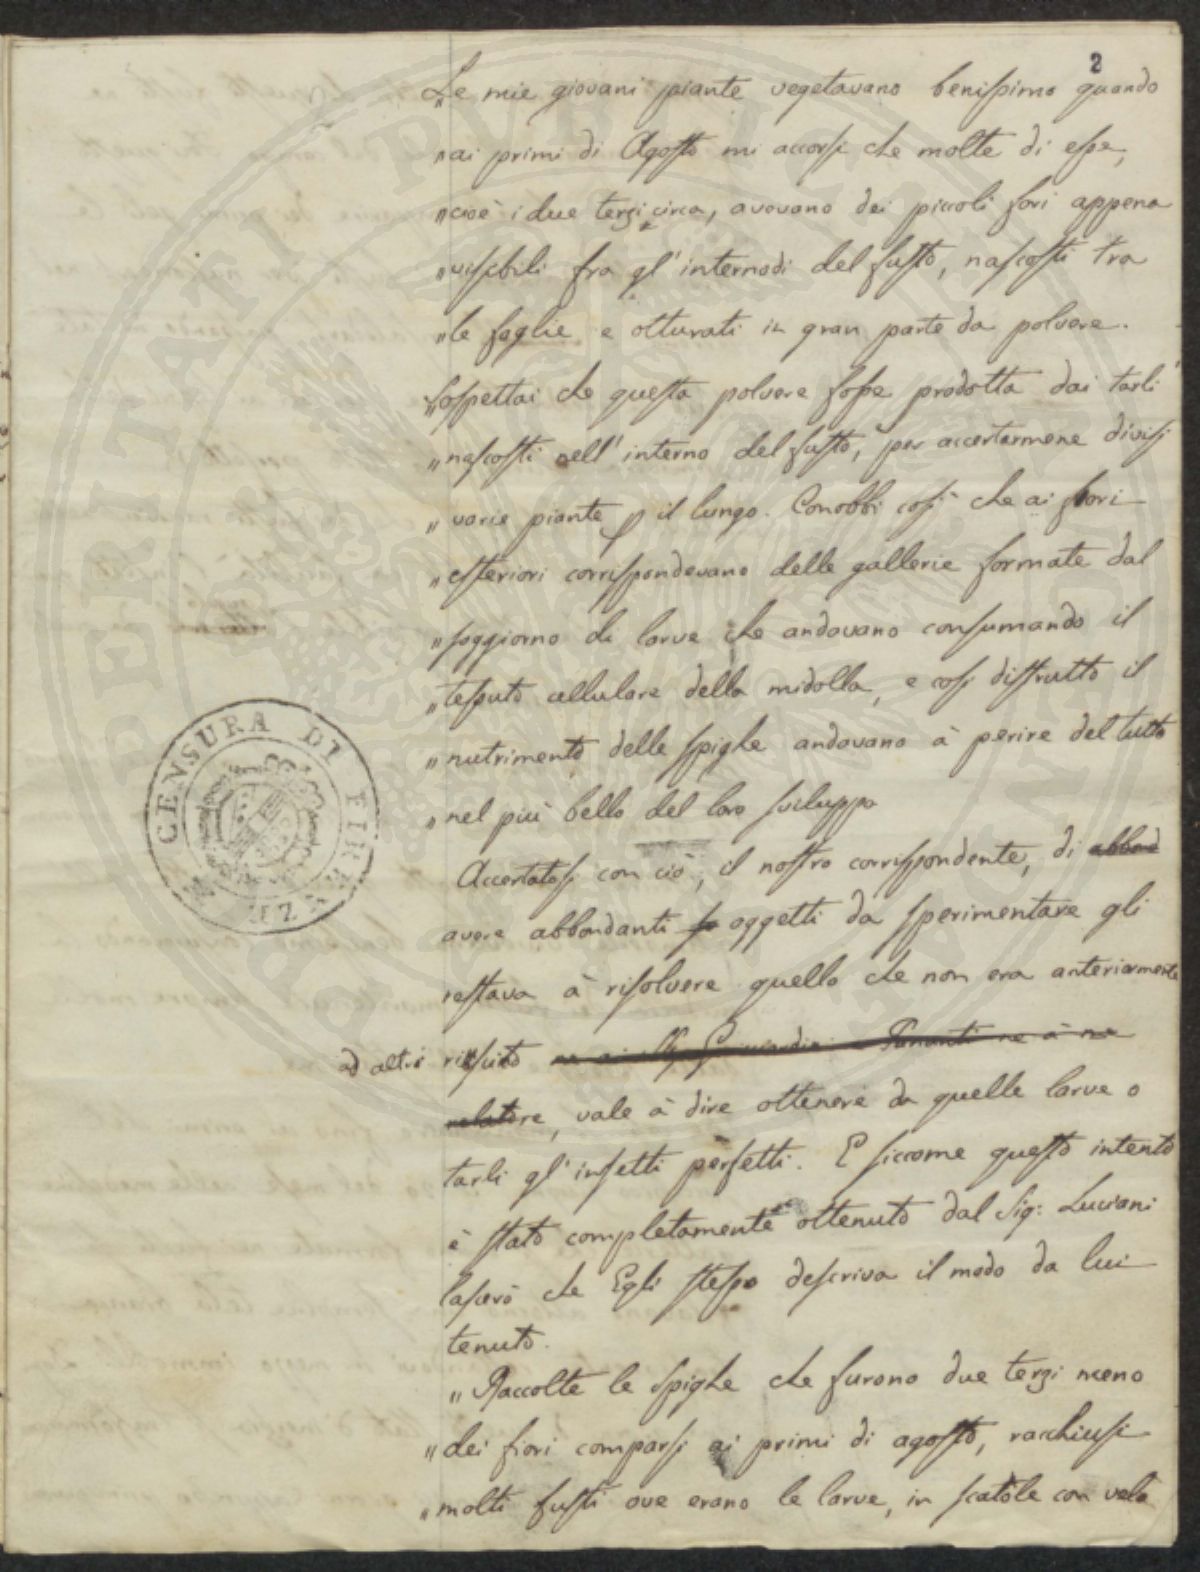 2
„Le mie giovani piante vegetavano benissimo quando
„ai primi di Agosto mi accorsi che molte di esse,
„cioè i due terzi circa, avevano dei piccoli fori appena
„visibili fra gl'internodi del fusto, nascosti tra
„le foglie e otturati in gran parte da polvere.
„Sospettai che questa polvere fosse prodotta dai tarli
„nascosti nell'interno del fusto, per accertarmene divisi
„varie piante p il lungo. Conobbi così che ai fori
„esteriori corrispondevano delle gallerie formate dal
„soggiorno di larve che andavano consumando il
„tessuto cellulare della midolla, e così distrutto il
„nutrimento delle spighe andavano à perire del tutto
„nel più bello del loro sviluppo
Accertatosi con ciò, il nostro corrispondente, di abbond
avere abbondanti oggetti da sperimentare gli
restava à risolvere quello che non era anteriormente
ad altri riuscito ne à ne
relatore, vale à dire ottenere da quelle larve o
tarli gl'insetti perfetti. E siccome questo intento
è stato completamente ottenuto dal Sig: Luciani
lascerò che Egli stesso descriva il modo da lui
tenuto.
„Raccolte le spighe che furono due terzi meno
„dei fiori comparsi ai primi di agosto, racchiusi
„molti fusti ove erano le larve, in scatole con velo
CENSURA DI FIRENZE
PERITATI PUBLICAE